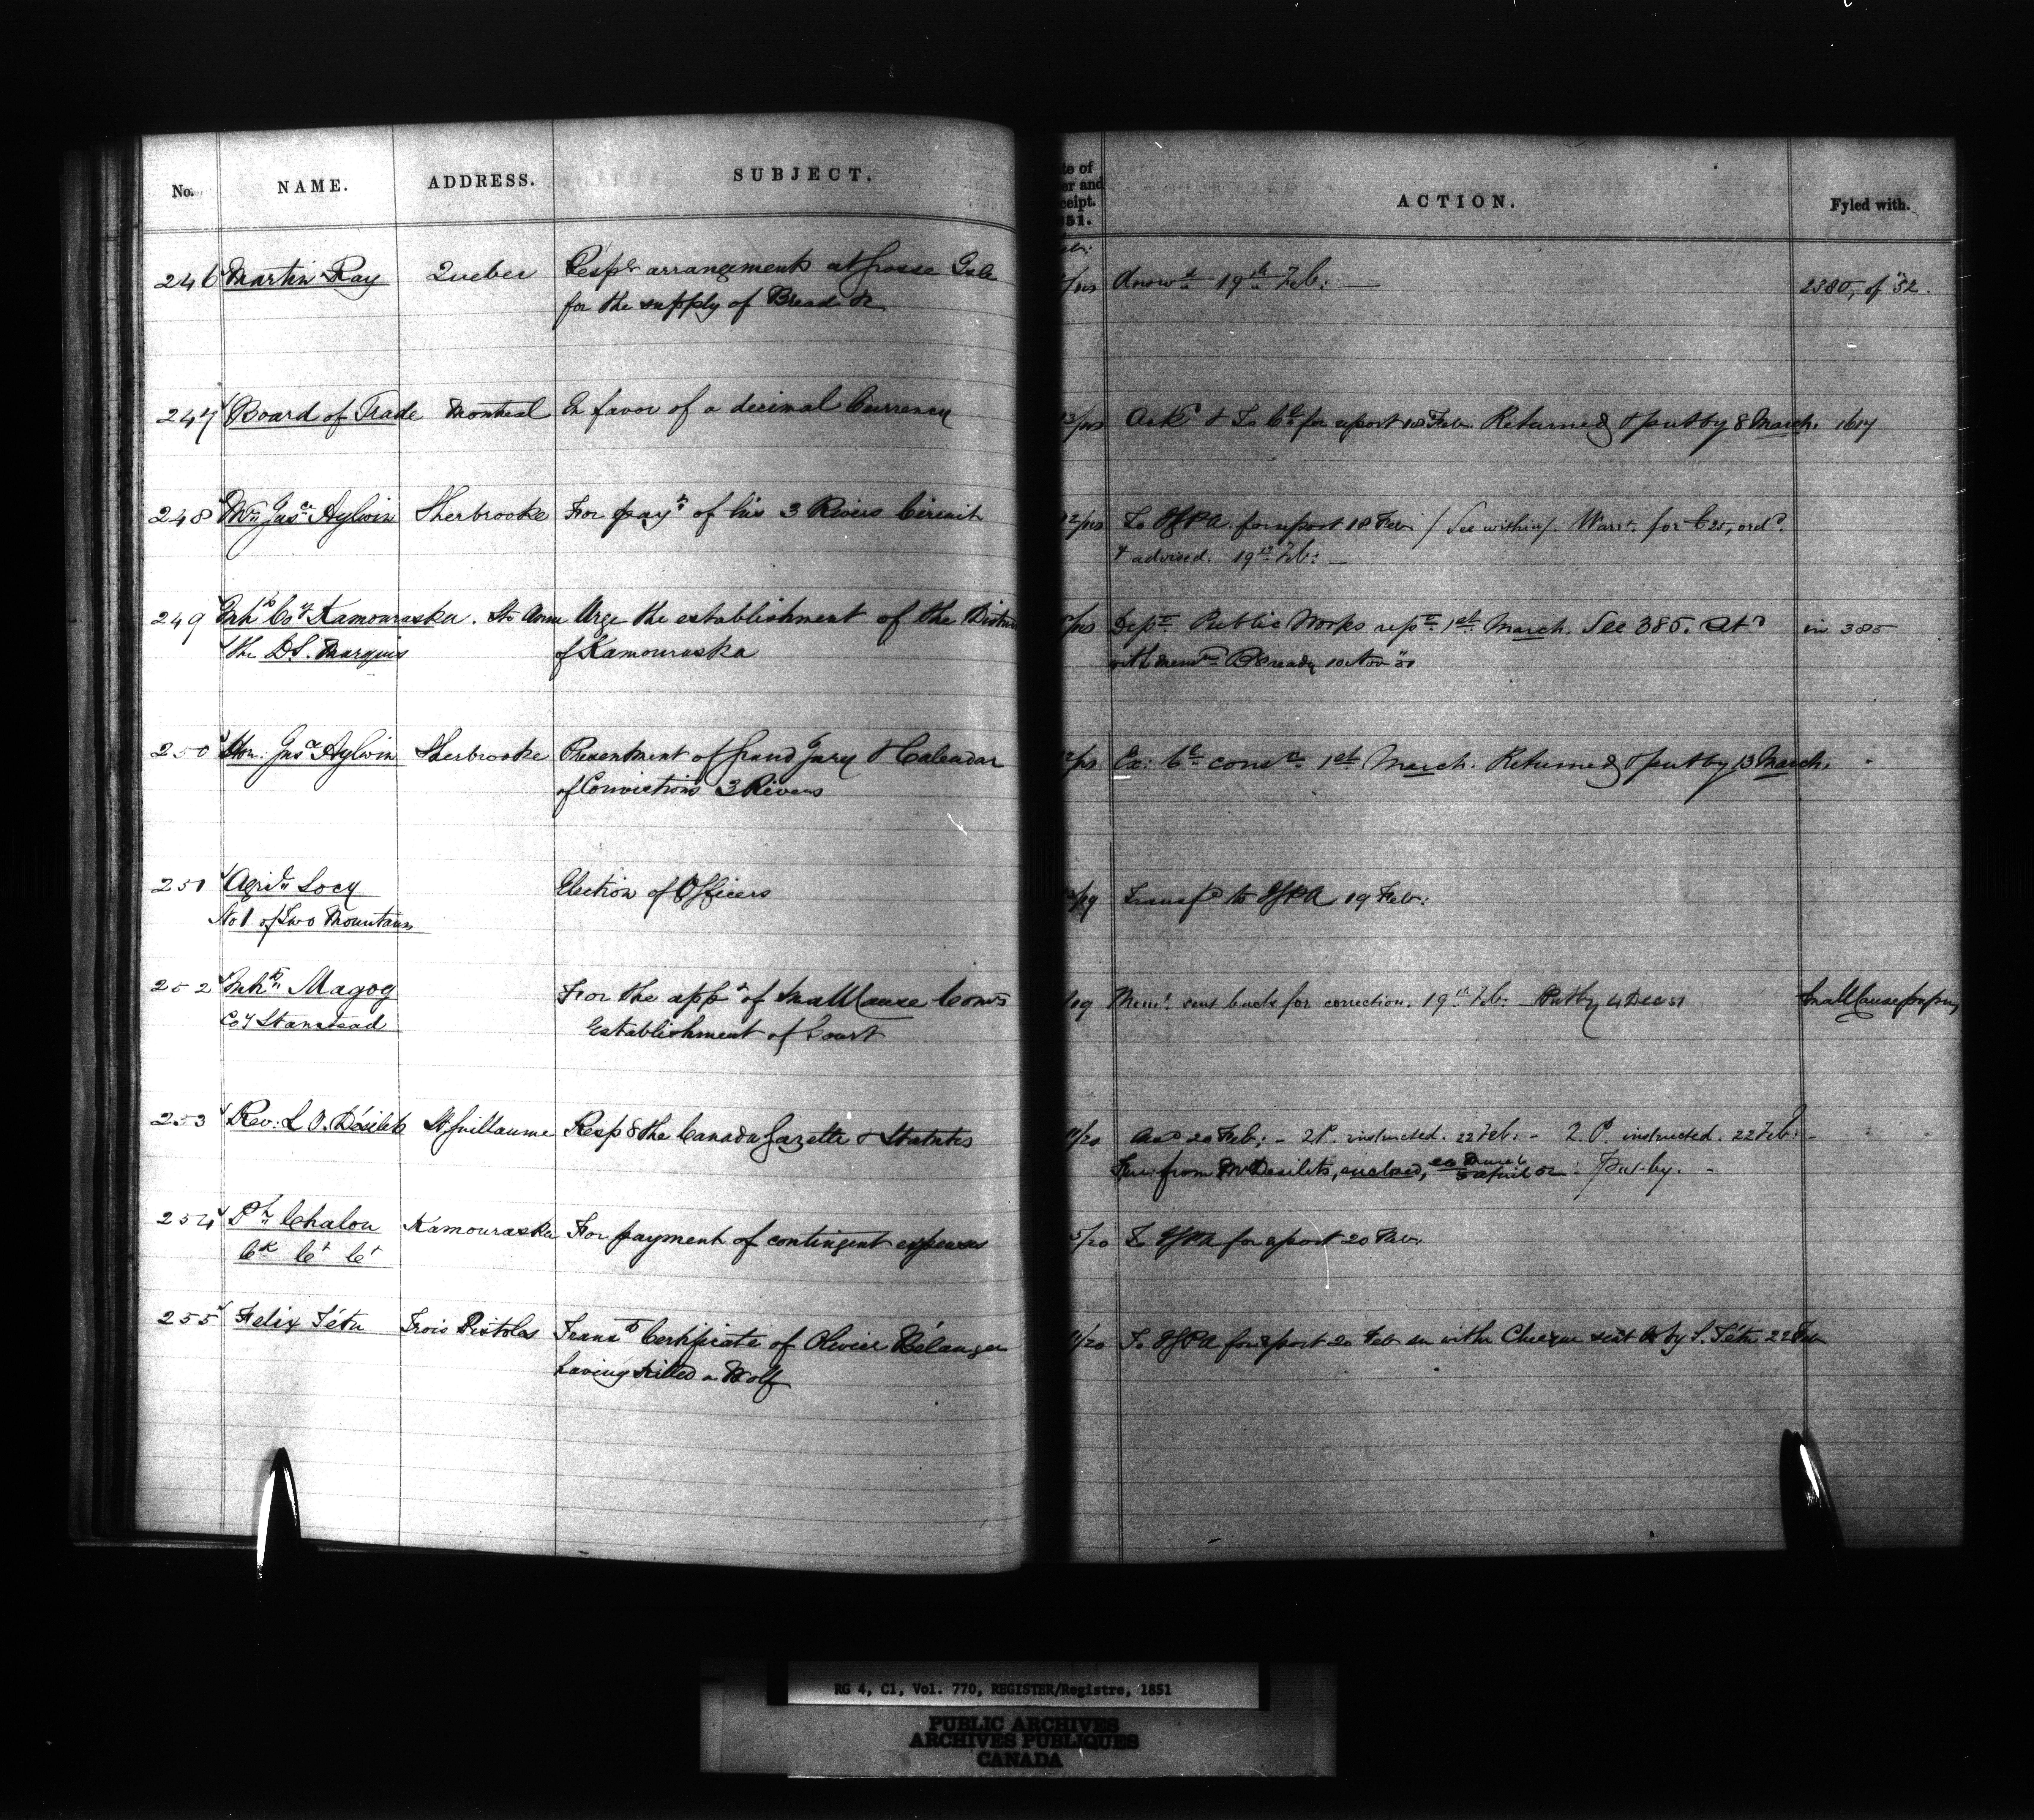 No. NAME. ADDRESS. SUBJECT.
te of
er and
ceipt.
851.
ACTION. Fyled with.
246 Martin Ray Quebec Respg arrangements at Grosse Isle
for the supply of Bread &c
Answd 19th Feb: 2380, of "52.
247 Board of Trade Montreal In favor of a decimal Currency
13/18 Ackd & To Ce for report 18 Feb. Returned & put by 8 March. 1617
248 Mr Jusce Aylwin Sherbrooke For payt of his 3 Rivers Circuit
12/18 To for report 18 Feb / See within/. Warrt. for £25, ordd.
& advised. 19th Feb: —
249 Inhts Coy Kamouraska. St Anne Urge the establishment of the District
the D.S. Marquis of Kamouraska
Dept Public Works rept 1st March. See 385. in 385
ready 10 Nov "51
250 Hon: Jusce Aylwin Sherbrooke Presentment of Grand Jury & Calendar
of Convictions 3 Rivers
12/18 Ex: Cl consn 1st March. Returned & put by 13 March.
251 Agricl Socy Election of Officers
No 1 of Two Mountains
Transfd to 19 Feb:
252 Inhts Magog For the appt of Small Cause Comrs
Coy Stanstead Establishment of Court
/19 Meml. sent back for correction. 19th Feb: Put by 4 Dec 51 Small Cause papers
253 Rev: L. O. Désilets St Guillaume Resp g the Canada Gazette & Statutes
/20 Ansd 20 Feb: - Q.P. instructed. 22 Feb: - Q. P. instructed. 22 Feb: -
from Mr Desilets, enclosed, 3 April 52 Put-by. -
254 Chalou Kamouraska For payment of contingent expenses
Ck Ct Ct
5/20 To for report 20 Feb:
255 Felix Tétu Trois Pistoles Transg Certificate of Olivier Bélanger
having killed a Wolf
/20 To for report 20 Feb with Cheque sent by F. Tétu 22 Feb
RG 4, C1, Vol. 770, REGISTER/Registre, 1851
PUBLIC ARCHIVES
ARCHIVES PUBLIQUES
CANADA